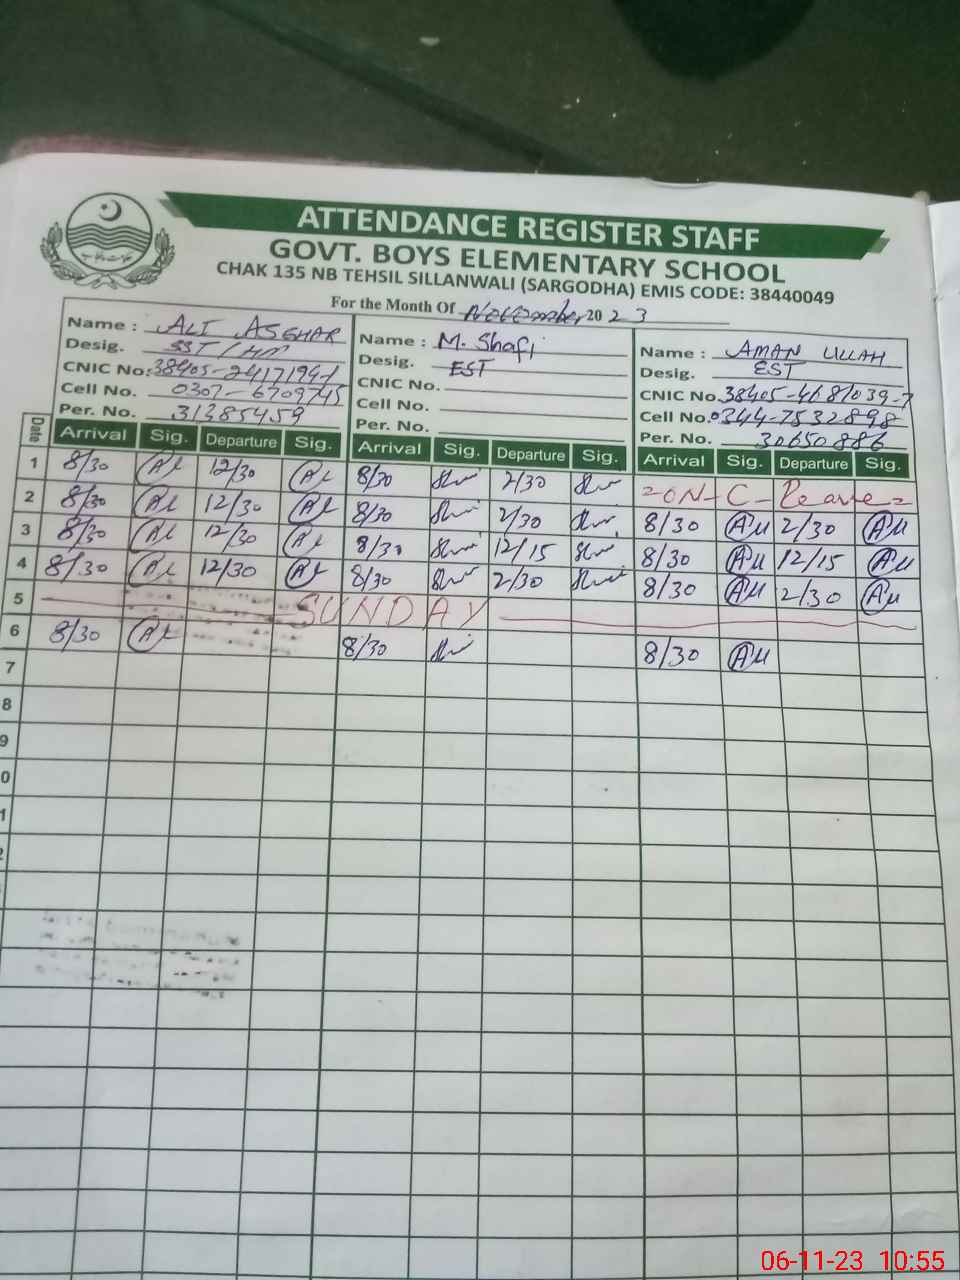 ATTENDANCE REGISTER STAFF
GOVT. BOYS ELEMENTARY SCHOOL
CHAK 135 NB TEHSIL SILLANWALI (SARGODHA) EMIS CODE: 38440049
For the Month Of November 2023
Name : ALI ASGHAR
Desig. SST/HM
CNIC No: 38405-2417194-1
Cell No. 0307-6709745
Per. No. 31385459
Name : M. Shafi
Desig. EST
CNIC No.
Cell No.
Per. No.
Name : AMAN ULLAH
Desig. EST
CNIC No. 38405-4687039-7
Cell No. 0344-7532898
Per. No. 30650886
Date Arrival Sig. Departure Sig. Arrival Sig. Departure Sig. Arrival Sig. Departure Sig.
1 8/30 12/30 8/30 2/30 =ON-C-Leave=
2 8/30 12/30 8/30 2/30 8/30 AU 2/30 AU
3 8/30 12/30 8/30 12/15 8/30 AU 12/15 AU
4 8/30 12/30 8/30 2/30 8/30 AU 2/30 AU
5 SUNDAY
6 8/30 8/30 8/30 AU
7
8
9
0
1
2
06-11-23 10:55